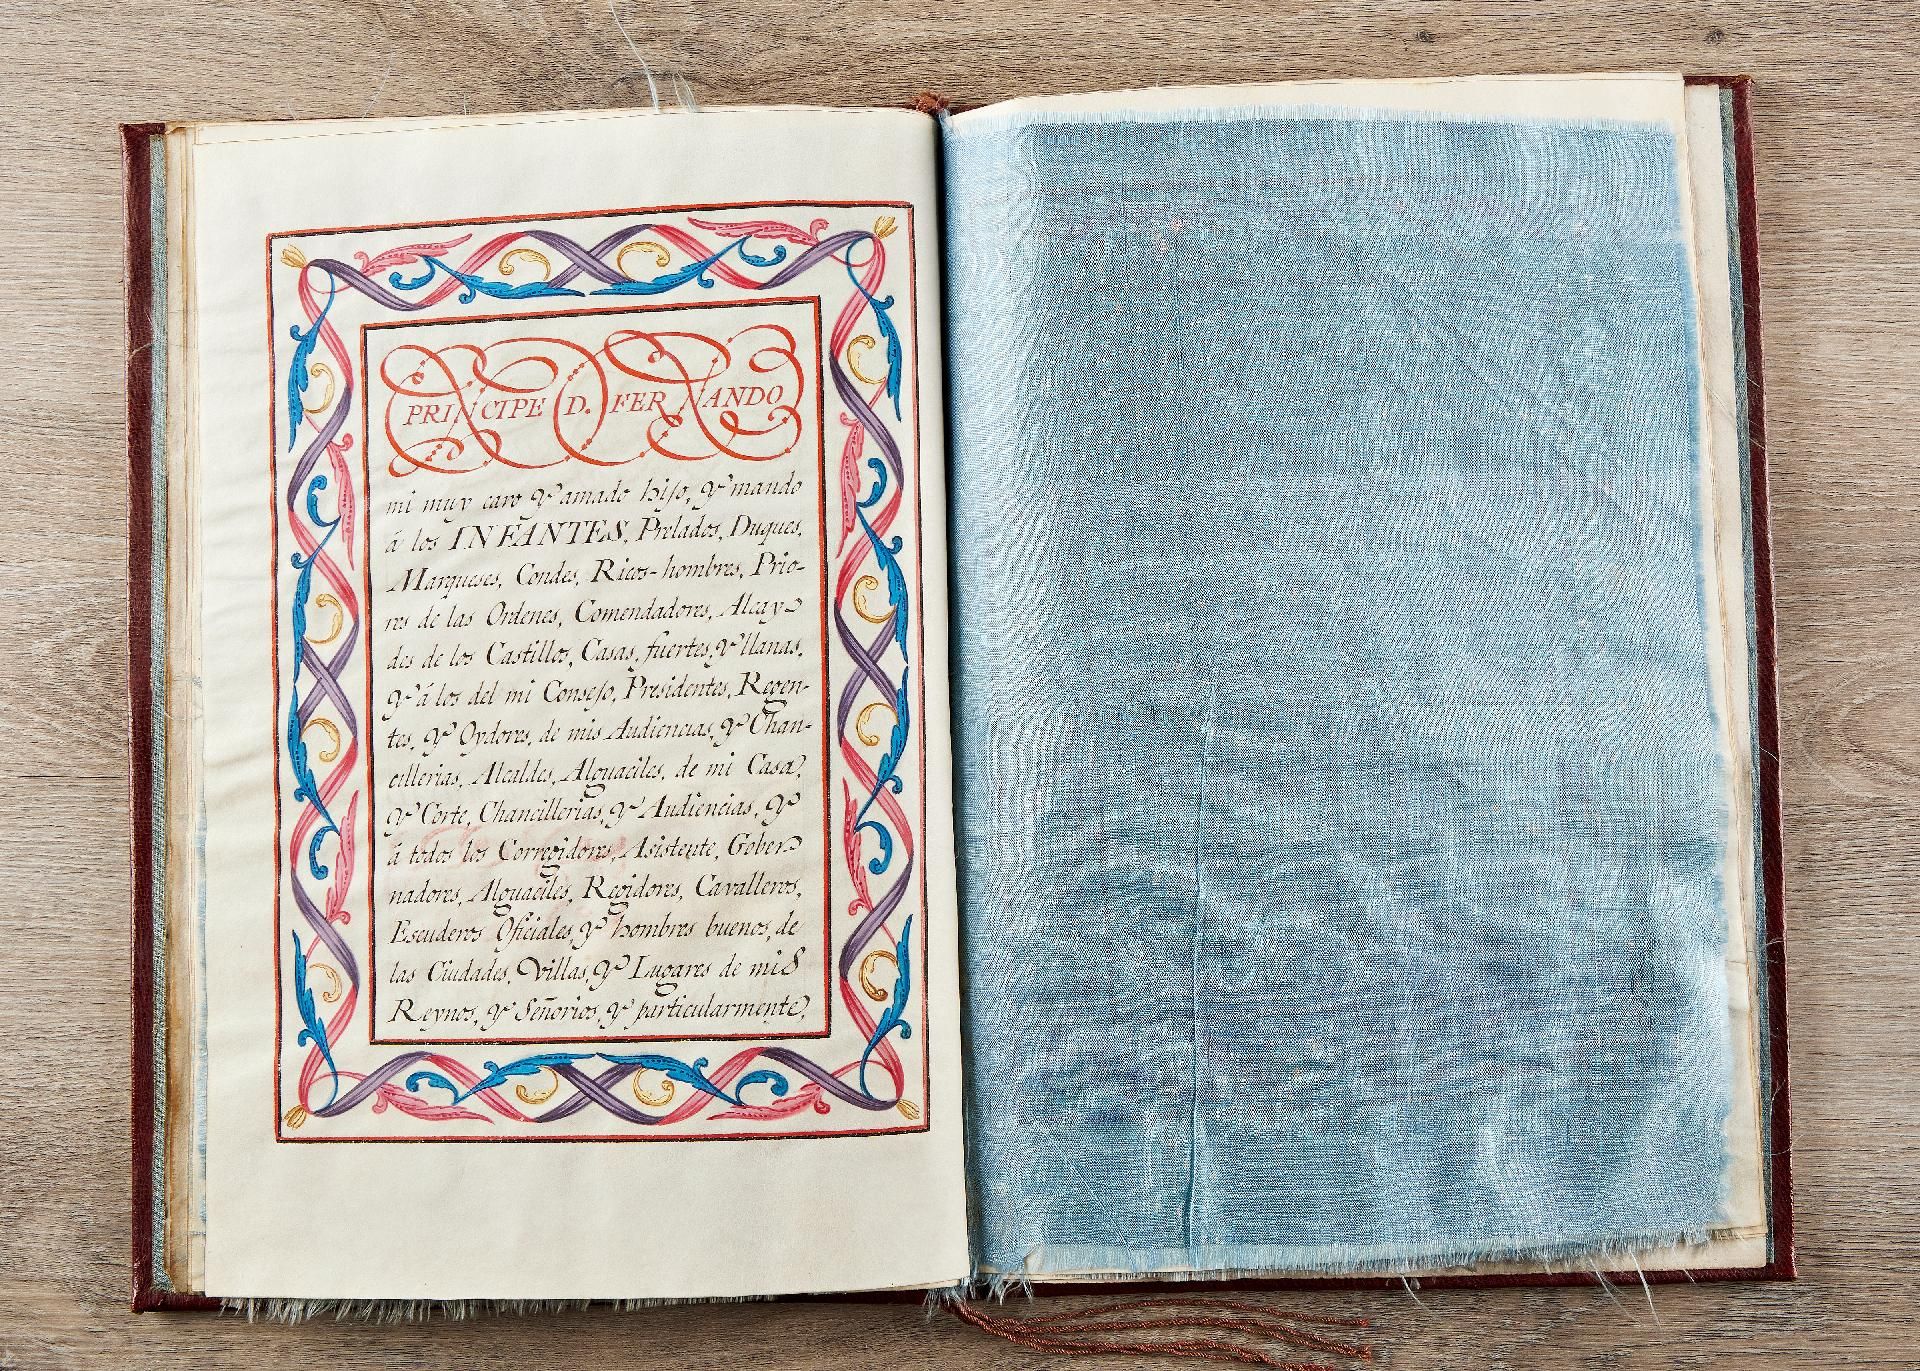 PRINCIPE D. FERNANDO
mi muy caro y amado hijo, y mando
á los INFANTES, Prelados, Duques,
Marqueses, Condes, Ricos-hombres, Prio-
res de las Ordenes, Comendadores, Alcay
des de los Castillos, Casas, fuertes, y llanas,
y á los del mi Consejo, Presidentes, Regen-
tes, y Oydores, de mis Audiencias, y Chan-
cillerias, Alcaldes, Alguaciles, de mi Casa,
y Corte, Chancillerias, y Audiencias, y
á todos los Corregidores, Asistente, Gober
nadores, Alguaciles, Regidores, Cavalleros,
Escuderos Oficiales, y hombres buenos, de
las Ciudades, Villas, y Lugares de mis
Reynos, y Señorios, y particularmente,